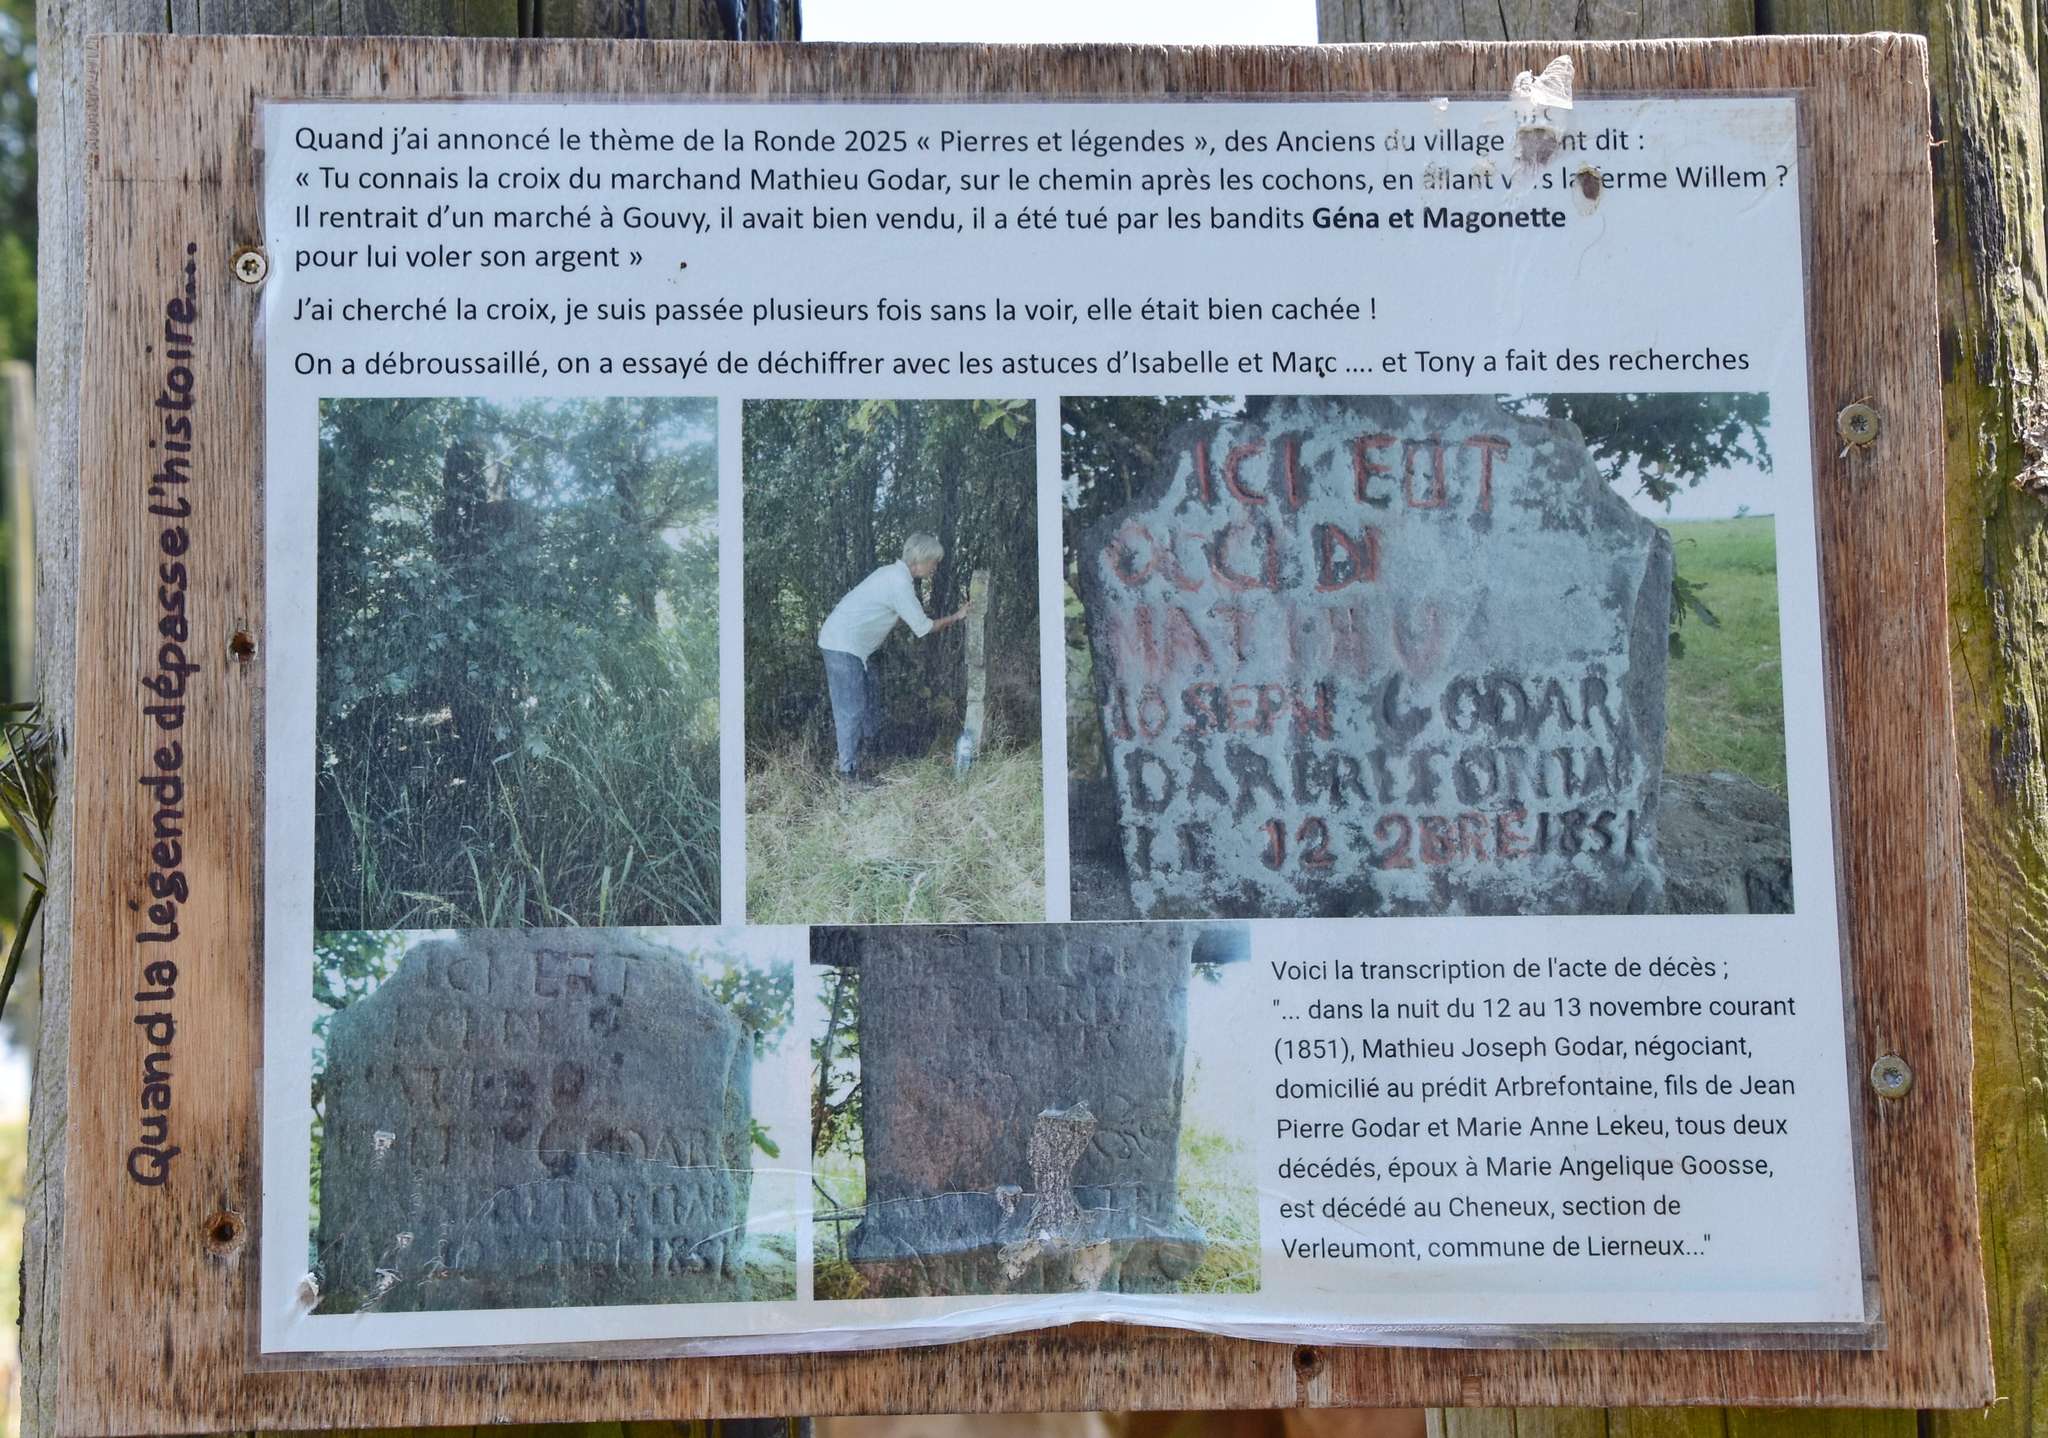 Quand la légende dépasse l'histoire....
Quand j'ai annoncé le thème de la Ronde 2025 « Pierres et légendes », des Anciens du village dit :
« Tu connais la croix du marchand Mathieu Godar, sur le chemin après les cochons, en allant vers la ferme Willem ?
Il rentrait d'un marché à Gouvy, il avait bien vendu, il a été tué par les bandits Géna et Magonette
pour lui voler son argent »
J'ai cherché la croix, je suis passée plusieurs fois sans la voir, elle était bien cachée !
On a débroussaillé, on a essayé de déchiffrer avec les astuces d'Isabelle et Marc .... et Tony a fait des recherches
ICI EUT
OCCI DI
MATIHU
JOSEPH GODAR
DARBREFONTAI
LE 12 2BRE 1851
ICI EUT
GODAR
1851
Voici la transcription de l'acte de décès ;
"... dans la nuit du 12 au 13 novembre courant
(1851), Mathieu Joseph Godar, négociant,
domicilié au prédit Arbrefontaine, fils de Jean
Pierre Godar et Marie Anne Lekeu, tous deux
décédés, époux à Marie Angelique Goosse,
est décédé au Cheneux, section de
Verleumont, commune de Lierneux..."